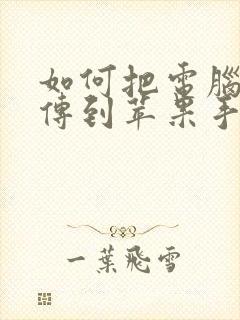 如何把電腦
傳到苹果手
一葉飛雪